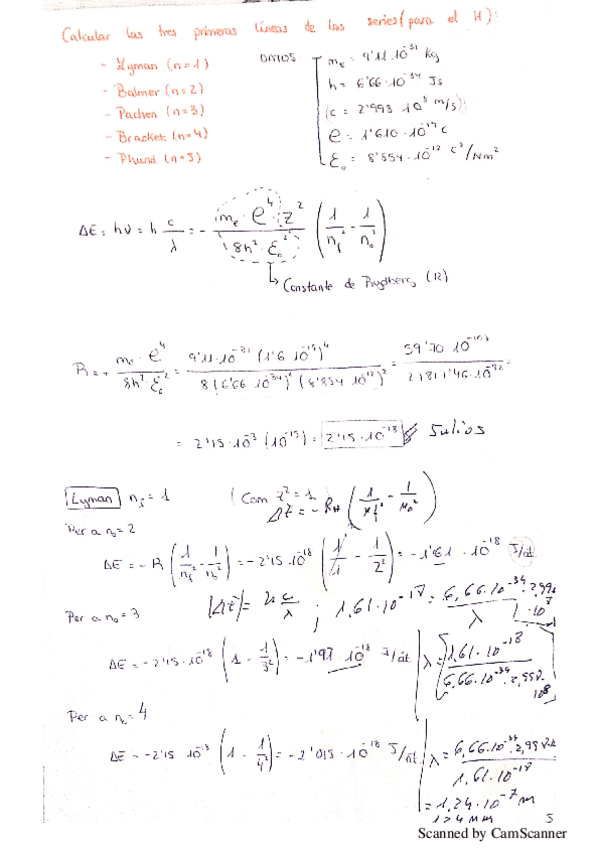 Calcular las tres primeras líneas de las series (para el H):
- Lyman (n=1)
- Balmer (n=2)
- Pachen (n=3)
- Bracket (n=4)
- Phund (n=5)
DATOS:
mₑ = 9'11·10⁻³¹ kg
h = 6'66·10⁻³⁴ Js
(c = 2'998·10⁸ m/s)
e = 1'610·10⁻¹⁹ C
ε₀ = 8'854·10⁻¹² C²/Nm²
ΔE = hν = h c/λ = - mₑ e⁴ z² / 8h² ε₀² (1/n_f² - 1/n₀²)
Constante de Rydberg (R)
R = + mₑ · e⁴ / 8h² · ε₀² = 9'11·10⁻³¹ (1'6 10⁻¹⁹)⁴ / 8 (6'66 10⁻³⁴)² (8'854 10⁻¹²)² =
= 2'15·10⁻³ (10⁻¹⁵) = 2'15·10⁻¹⁸ Julios
Lyman n_f = 1 (Com z² = 1
ΔE = - R_H (1/n_f² - 1/n₀²)
Per a n₀ = 2
ΔE = - R (1/n_f² - 1/n₀²) = - 2'15·10⁻¹⁸ (1/1 - 1/2²) = - 1'61·10⁻¹⁸ J/át
|ΔE| = h c/λ ; 1,61·10⁻¹⁸ = 6,66·10⁻³⁴·2,998·10⁸ / λ
Per a n₀ = 3
ΔE = - 2'15·10⁻¹⁸ (1 - 1/3²) = - 1'91·10⁻¹⁸ J/át
λ = 1,61·10⁻¹⁸ / 6,66·10⁻³⁴·2,998·10⁸
Per a n₀ = 4
ΔE = - 2'15 10⁻¹⁸ (1 - 1/4²) = - 2'015·10⁻¹⁸ J/át
λ = 6,66·10⁻³⁴·2,998·10⁸ / 1,61·10⁻¹⁸
= 1,24·10⁻⁷ m
5
Scanned by CamScanner